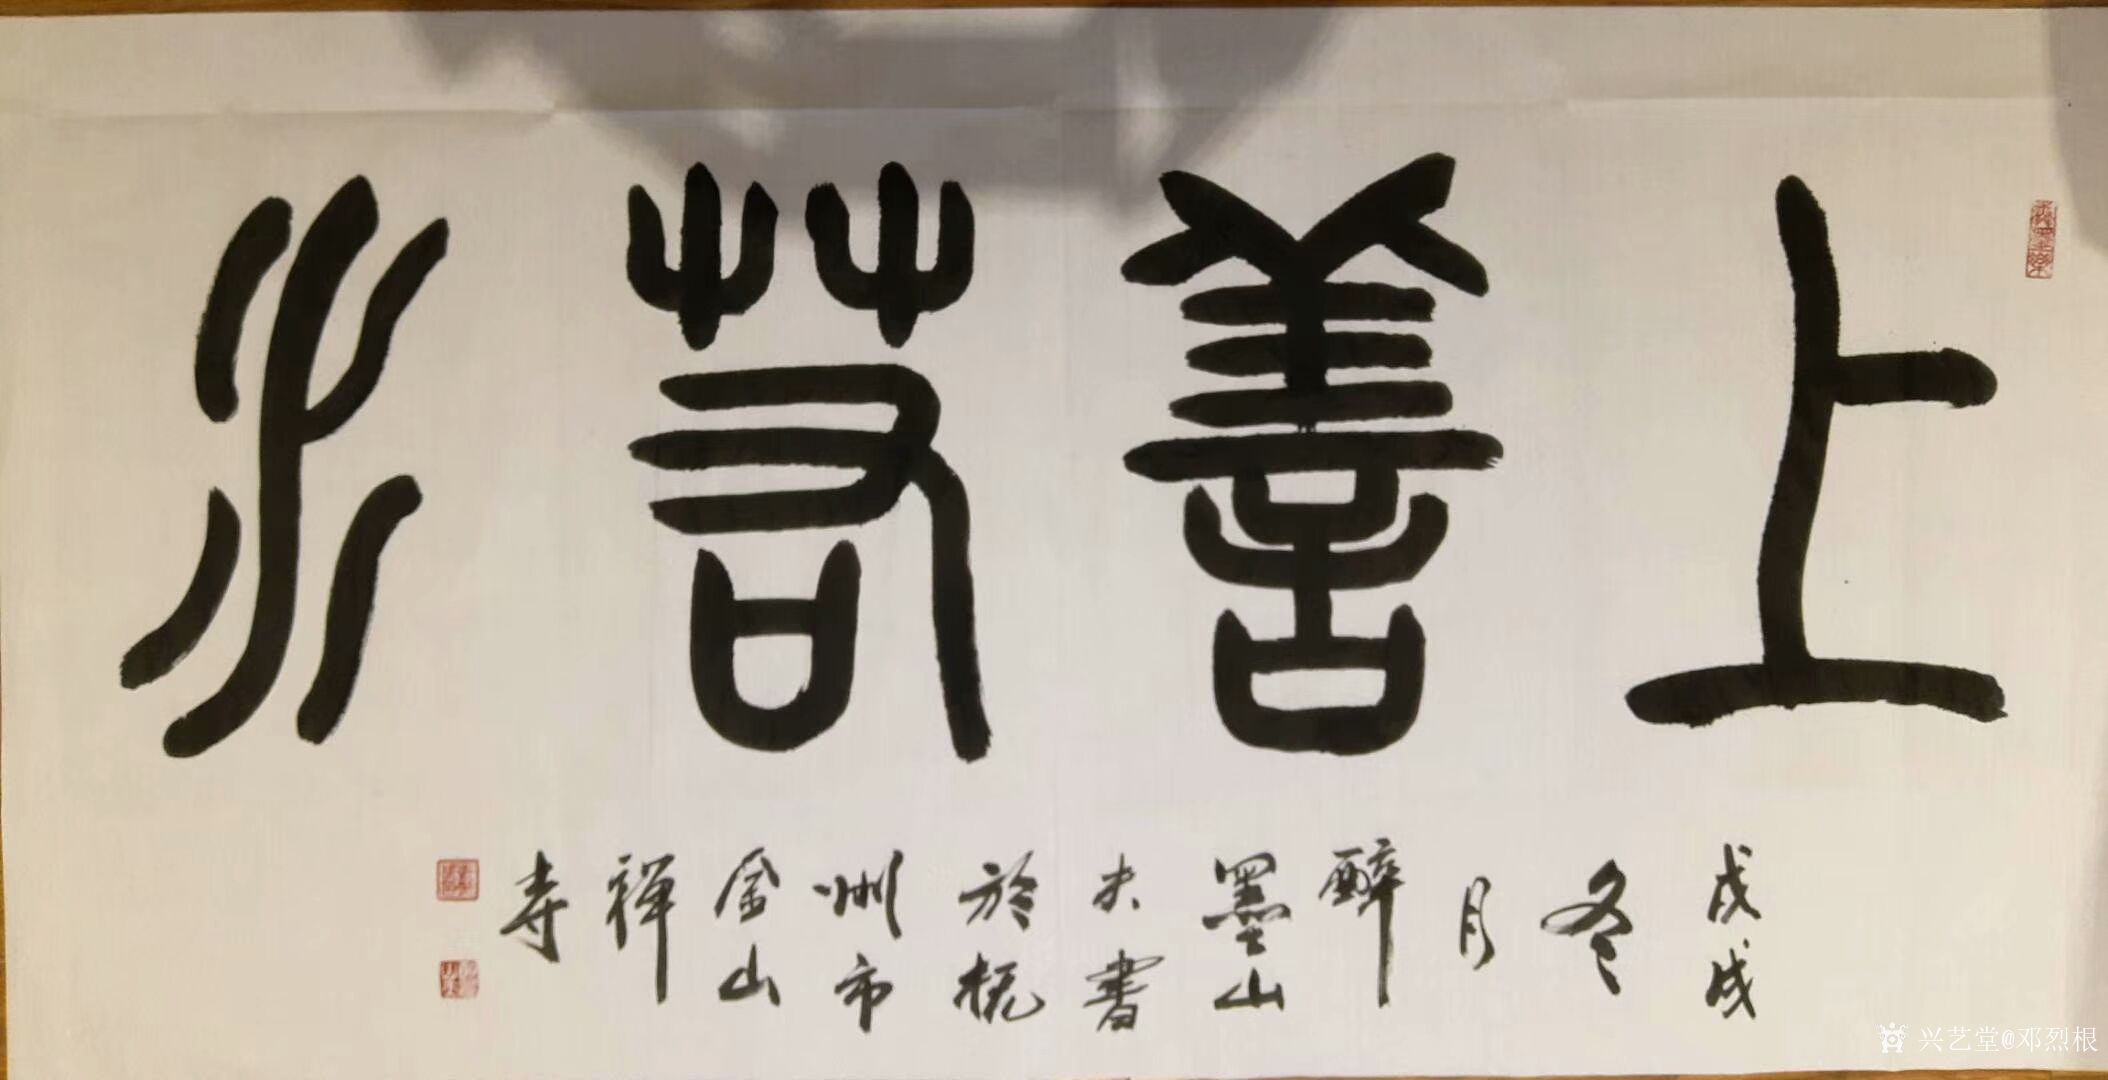 上善若水
戊戌
冬
月
醉
墨山
夫書
於杭
州市
金山
禅
寺
兴艺堂@邓烈根